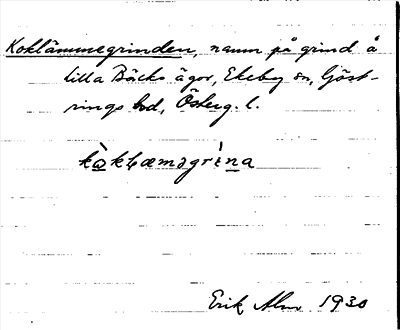 Koklämmegrinden, namn på grind å
Lilla Bäcks ägor, Ekeby sn, Göst-
rings hd, Österg. l.
kòkłæməgrìna
Erik Alm 1930